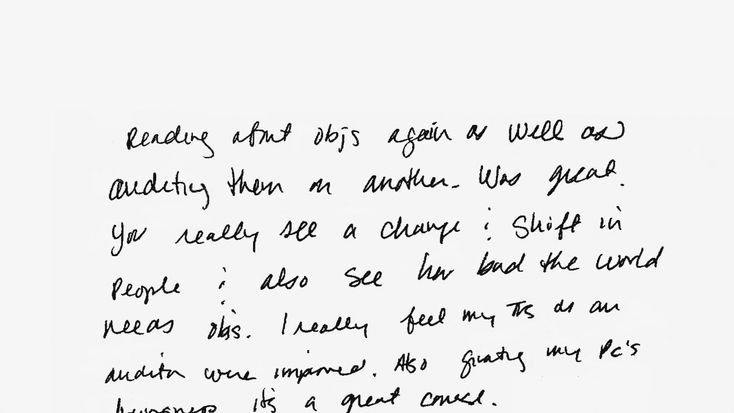 Reading about objs again as well as
auditing them on another. Was great.
You really see a change & shift in
People & also see how bad the world
needs objs. I really feel my TRs as an
auditor were improved. Also my Pc's
it's a great course.